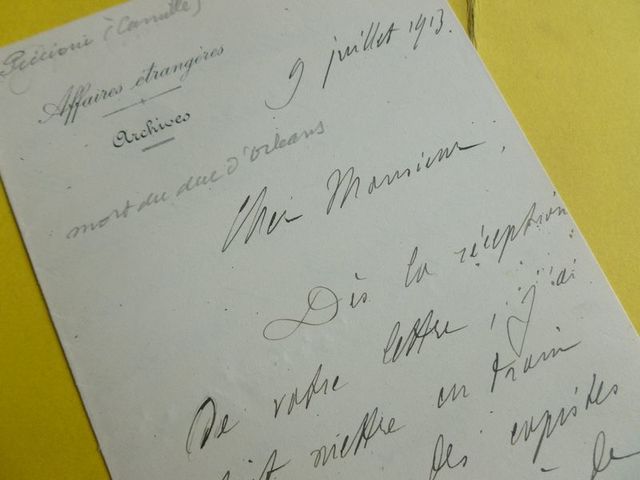 Piccioni (Camille)
Affaires étrangères
Archives
9 juillet 1913.
mort du duc d'Orléans
Cher Monsieur,
Dès la réception
de votre lettre, j'ai
fait mettre en train
des copistes
de